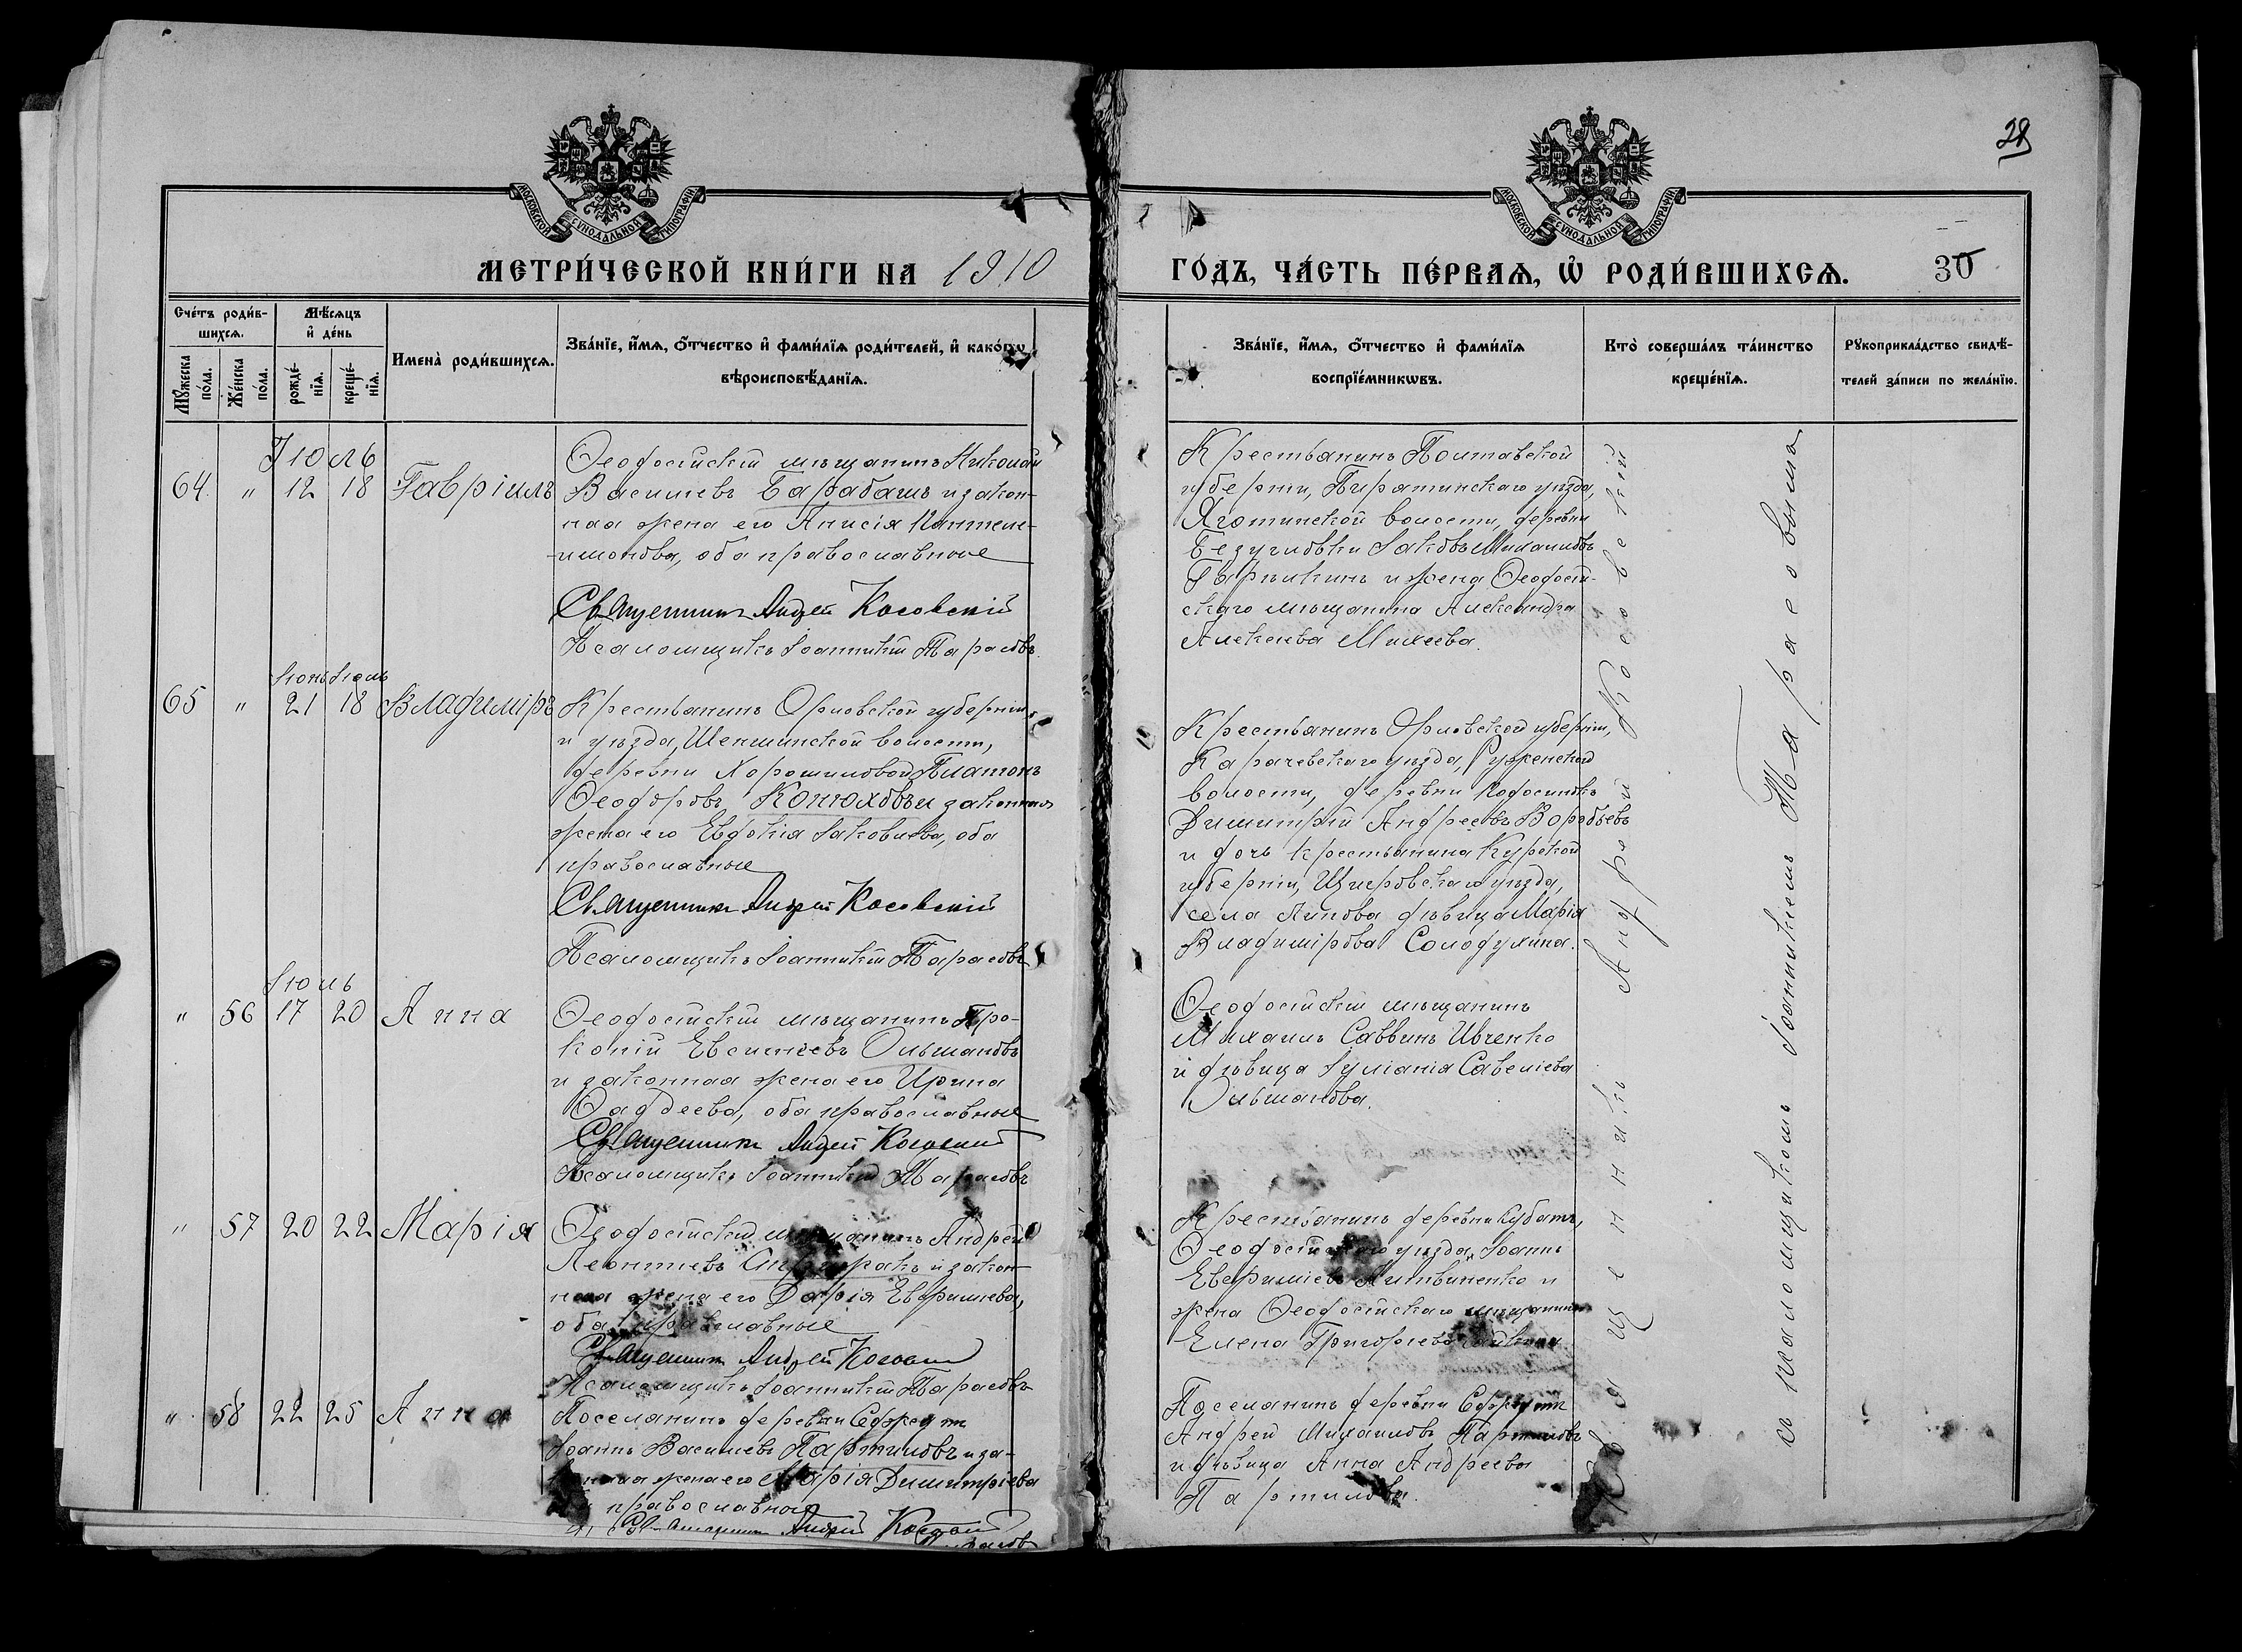 28
МОСКОВСКОЙ СѴНОДАЛЬНОЙ ТИПОГРАФІИ
МОСКОВСКОЙ СѴНОДАЛЬНОЙ ТИПОГРАФІИ
МЕТРИ́ЧЕСКОЙ КНИ́ГИ НА 1910
ГО́ДЪ, ЧА́СТЬ ПЕ́РВАѦ, Ѡ҆ РОДИ́ВШИХСѦ. 30
Сче́тъ роди́в-
шихсѧ.
Мѣ́сѧцъ
и҆ де́нь
Мꙋ́жеска
по́ла.
Же́нска
по́ла.
рожде́-
нїѧ.
креще́-
нїѧ.
Имена̀ роди́вшихсѧ.
Зва́нїе, и҆́мѧ, ѻ҆́тчество и҆ фами́лїѧ роди́телей, и҆ како́гѡ
вѣроисповѣ́данїѧ.
Зва́нїе, и҆́мѧ, ѻ҆́тчество и҆ фами́лїѧ
воспрїе́мникѡвъ.
Кто̀ соверша́лъ та́инство
креще́нїѧ.
Рꙋкоприкла́дство свидѣ́-
телей за́писи по жела́нїю.
Іюль
64. " 12 18 Гавріилъ
Ѳеодосійскій мѣщанинъ Николай
Васильевъ Барабашъ и закон-
ная жена его Анисія Пантеле-
имонова, оба православные
Священникъ Андрей Косовскій
Псаломщикъ Іоанникій Тарасовъ
Крестьянинъ Полтавской
губерніи, Пирятинскаго уѣзда,
Яготинской волости, деревни
Безугловки Іаковъ Михаиловъ
и жена Ѳеодосій-
скаго мѣщанина Александра
Алексеева Михеева.
Іюнь Іюль
65 " 21 18 Владиміръ
Крестьянинъ Орловской губерніи
и уѣзда, волости,
деревни Хорошиловой Платонъ
Ѳеодоровъ Конюховъ и законная
жена его Евдокія Іаковлева, оба
православные
Священникъ Андрей Косовскій
Псаломщикъ Іоанникій Тарасовъ
Крестьянинъ Орловской губерніи,
Карачевскаго уѣзда, Руженской
волости, деревни
Димитрій Андреевъ Воробьевъ
и дочь крестьянина Курской
губерніи, Щигровскаго уѣзда,
села дѣвица Марія
Владимірова Солодухина.
Іюль
" 56 17 20 Анна
Ѳеодосійскій мѣщанинъ Про-
копій Евсигнеевъ Ольшановъ
и законная жена его Ирина
Ѳаддеева, оба православные
Священникъ Андрей Косовскій
Псаломщикъ Іоанникій Тарасовъ
Ѳеодосійскій мѣщанинъ
Михаилъ Саввинъ Ивченко
и дѣвица Іуліанія Савеліева
Ольшанова.
" 57 20 22 Марія
Ѳеодосійскій мѣщанинъ Андрей
Леонтіевъ и закон-
ная жена его Дарія Евфиміева,
оба православные
Священникъ Андрей Косовскій
Псаломщикъ Іоанникій Тарасовъ
Крестьянинъ деревни
Ѳеодосійскаго уѣзда, Іоаннъ
Евфиміевъ Литвиненко и
жена Ѳеодосійскаго мѣщанина
Елена Григорьева
" 58 22 25 Анна
Поселянинъ деревни Седжеутъ
Іоаннъ Васильевъ Партиловъ и за-
конная жена его Марія Димитріева
оба православные
Священникъ Андрей Косовскій
Тарасовъ
Поселянинъ деревни Седжеутъ
Андрей Михаиловъ Партиловъ
и дѣвица Анна Андреева
Партилова.
Священникъ Андрей Косовскій
съ псаломщикомъ Іоанникіемъ Тарасовымъ